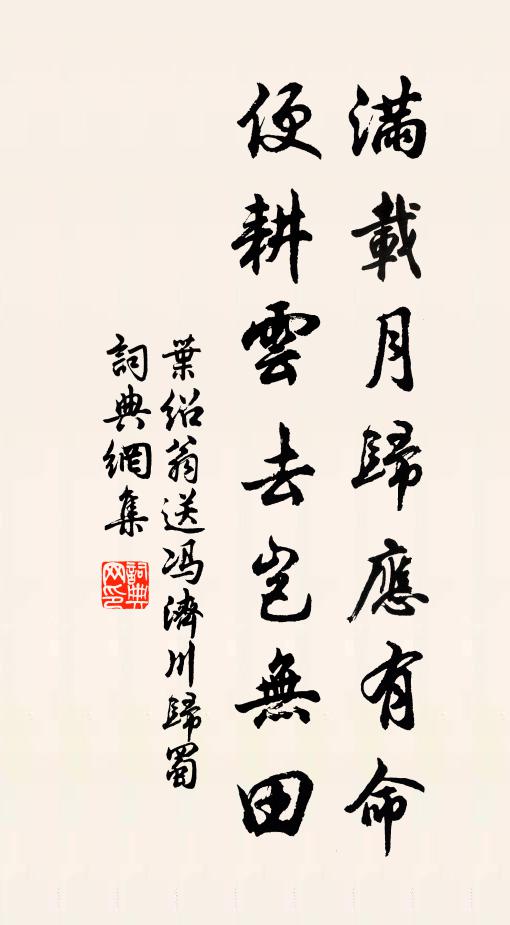 滿載月歸應有命
便耕雲去豈無田
葉紹翁送冯濟川歸蜀
詞典網集
詞典网印